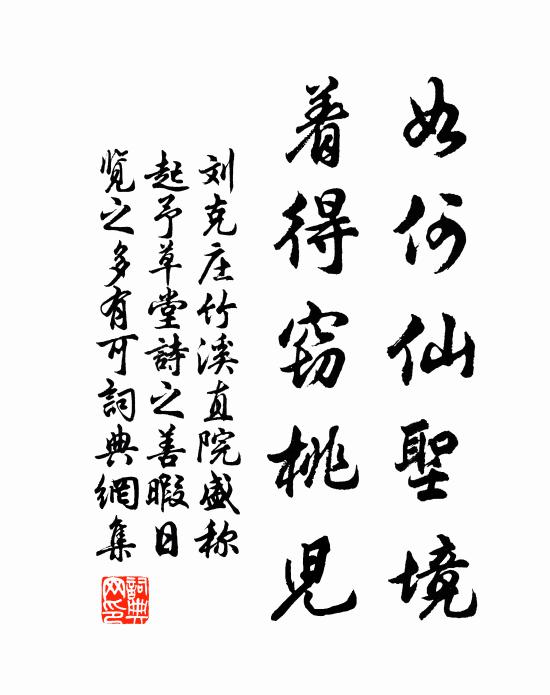 如何仙聖境
着得窃桃児
刘克庄竹溪直院盛称
起予草堂詩之善暇日
览之多有可詞典網集
詞典网印